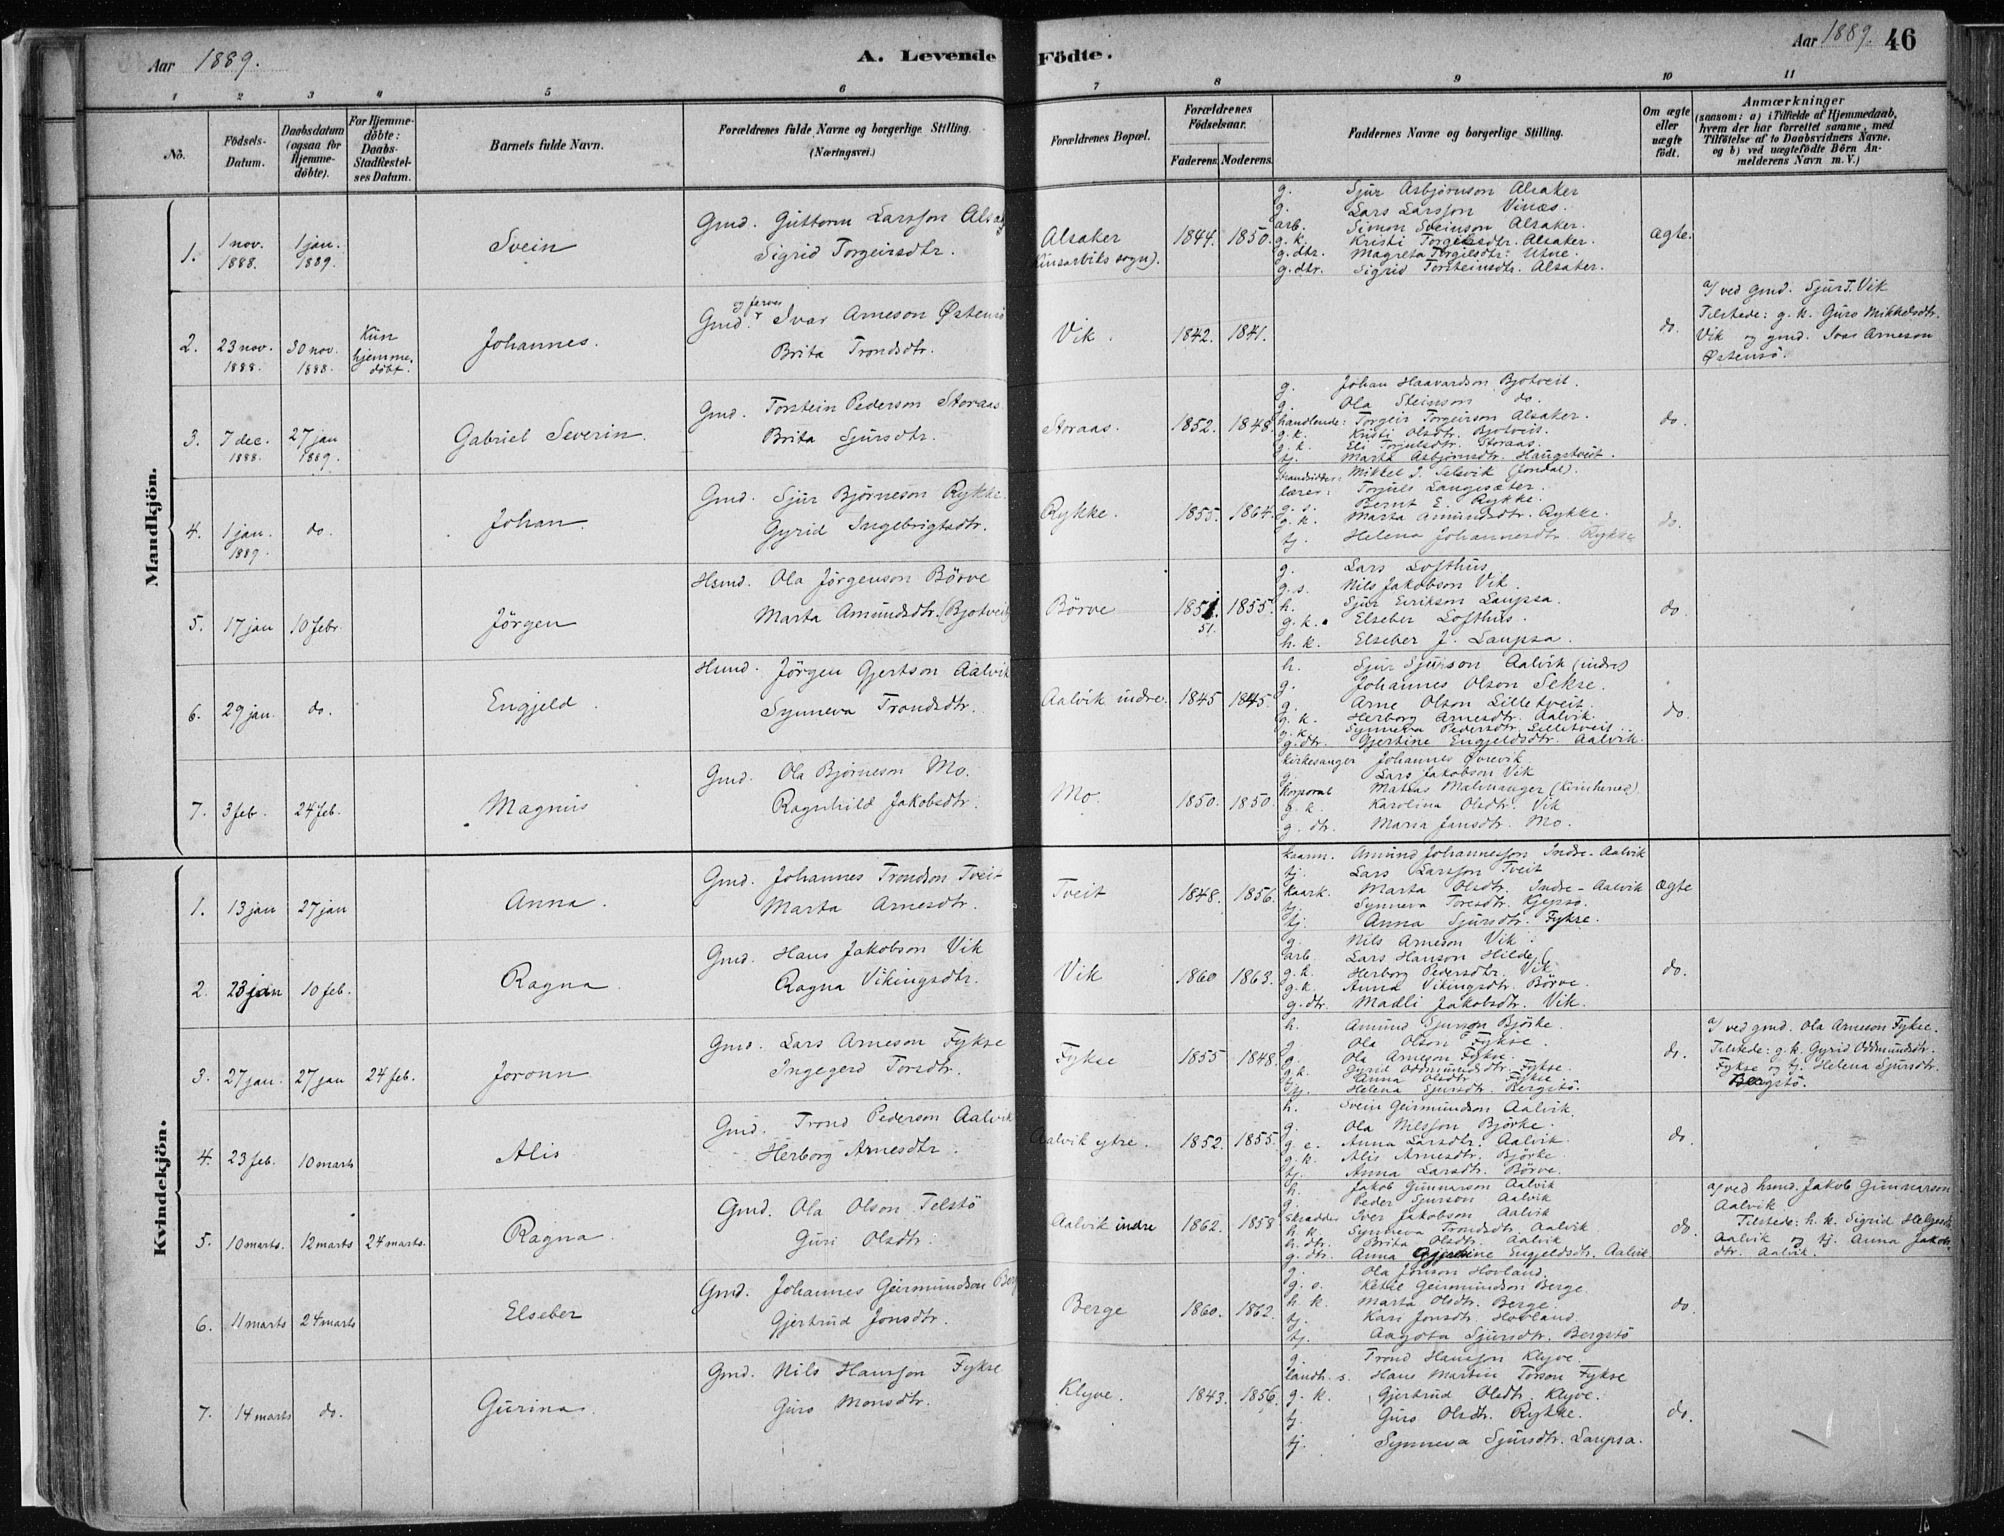 Aar 1889. A. Levende Födte. Aar 1889. 46
1 2 3 4 5 6 7 8 9 10 11
No.
Födsels-Datum.
Daabsdatum (ogsaa for Hjemme-döbte).
For Hjemme-döbte: Daabs-Stadfæstel-ses Datum.
Barnets fulde Navn.
Forældrenes fulde Navne og borgerlige Stilling.
(Næringsvei.)
Forældrenes Bopæl.
Forældrenes Födselsaar.
Faderens. Moderens.
Faddernes Navne og borgerlige Stilling.
Om ægte eller uægte födt.
Anmærkninger
(saasom: a) i Tilfælde af Hjemmedaab,
hvem der har forrettet samme, med
Tilföielse af to Daabsvidners Navne,
og b) ved uægtefödte Börn An-
melderens Navn m. V.)
Mandkjön.
1. 1 nov. 1888. 1 jan. 1889. Svein
Gmd. Guttorm Larsson Alsak
Sigrid Torgeirsdtr.
Alsaker (Kinsarviks sogn). 1844. 1850.
g. Sjur Asbjørnson Alsaker
g. Lars Larsson Vinæs.
arb. Simon Sveinson Alsaker.
g. k. Kristi Torgeirsdtr. Alsaker.
g. dtr. Magreta Torgilsdtr: Utne.
g. dtr. Sigrid Torsteinsdtr. Alsaker.
Ægte.
2. 23 nov. 1888. 30 nov. 1888. Kun hjemme-döbt. Johannes.
Gmd. og farver Ivar Arneson Østensö
Brita Trondsdtr.
Vik. 1842. 1841. do.
a/ ved gmd. Sjur T. Vik
Tilstede: g. k. Guro Mikkelsdtr.
Vik og gmd. Ivar Arneson
Østensö.
3. 7 dec. 1888. 27 jan 1889. Gabriel Severin.
Gmd. Torstein Pederson Storaas
Brita Sjursdtr.
Storaas. 1852. 1848.
g. Johan Haavardson Bjotveit.
g. Ola Steinson do.
handlende: Torgeir Torgeirson Alsaker.
g. k. Kristi Olsdtr. Bjotveit.
g. k. Eli Torjulsdtr. Storaas.
tj. Marta Asbjørnsdtr. Haugstveit.
do.
4. 1 jan. 1889. do. Johan
Gmd. Sjur Bjørneson Rykke
Gyrid Ingebrigtsdtr.
Rykke. 1855. 1864.
Strandsidder: Mikkel J. Selsvik (Jondal).
lærer: Torjuls Langesæter.
g. s. Bernt E. Rykke.
g. k. Marta Amundsdtr. Rykke.
tj. Helena Johannesdtr. Fykse
do.
5. 17 jan 10 febr. Jörgen
Hsmd. Ola Jörgenson Börve
Marta Amundsdtr. (Bjotveit)
Börve 1851. 51. 1855.
g. Lars Lofthus
g. s. Nils Jakobson Vik.
h. Sjur Eirikson Laupsa.
g. k. Elseber Lofthus.
h. k. Elseber J. Laupsa.
do.
6. 29 jan. do. Engjeld
Hsmd. Jörgen Gjertson Aalvik
Synneva Trondsdtr.
Aalvik indre. 1845 1845.
h. Sjur Sjurson Aalvik (indre)
g. Johannes Olson Sekse.
g. Arne Olson Lilletveit.
g. k. Herborg Arnesdtr. Aalvik.
g. k. Synneva Pedersdtr. Lilletveit.
g. dtr. Gjertine Engjeldsdtr. Aalvik.
do.
7. 3 feb. 24 feb. Magnus
Gmd. Ola Bjørneson Mo.
Ragnhild Jakobsdtr.
Mo. 1850. 1850.
kirkesanger Johannes Øvrevik
g. Lars Jakobson Vik
korporal Matias Malmanger (Kvinherred)
g. k. Karolina Olsdtr. Vik
g. dtr. Maria Jansdtr. Mo.
Kvindekjön.
1. 13 jan 27 jan Anna.
Gmd. Johannes Trondson Tveit
Marta Arnesdtr.
Tveit 1848. 1856.
kaarm. Amund Johannesson Indre-Aalvik
tj. Lars Larsson Tveit
kaark. Marta Olsdtr. Indre-Aalvik
tj. Synneva Toresdtr. Kjepsö.
tj. Anna Sjursdtr. Fykse.
Ægte
2. 23 jan 10 feb. Ragna
Gmd. Hans Jakobson Vik
Ragna Vikingsdtr.
Vik 1860 1863.
g. Nils Arneson Vik.
arb. Lars Hanson Hilde
g. k. Herborg Pedersdtr. Vik
g. k. Anna Vikingsdtr. Börve.
g. dtr. Madli Jakobsdtr. Vik.
do.
3. 27 jan. 27 jan 24 feb. Joronn
Gmd. Lars Arneson Fykse
Ingegerd Torsdtr.
Fykse 1855 1848.
h. Amund Sjurson Björke.
g. Ola Olson Fykse.
g. Ola Arneson Fykse.
g. k. Gyrid Oddmundsdtr. Fykse.
tj. Anna Olsdtr Fykse.
tj. Helena Sjursdtr. Bergstö.
do.
a/ ved gmd. Ola Arneson Fykse.
Tilstede: g. k. Gyrid Oddmundsdtr.
Fykse og tj. Helena Sjursdtr.
Bergstö.
4. 23 feb. 10 marts Alis
Gmd. Trond Pederson Aalvik
Herborg Arnesdtr.
Aalvik ytre. 1852. 1855.
h. Svein Geirmundson Aalvik.
g. Ola Nilsson Björke.
g. e. Anna Larsdtr. Aalvik.
g. k. Alis Arnesdtr. Björke
tj. Anna Larsdtr. Börve.
do.
5. 10 marts. 12 marts 24 marts. Ragna.
Gmd. Ola Olson Telstö
Guri Olsdtr.
Aalvik indre 1862. 1858
h. Jakob Gunnarson Aalvik
g. Peder Sjurson Aalvik
skrædder Iver Jakobson Aalvik
h. k. Synneva Trondsdtr. Aalvik.
h. dtr. Brita Olsdtr. Aalvik
g. dtr. Anna Gjertine Engjeldsdtr. Aalvik
do.
a/ ved hsmd. Jakob Gunnarson
Aalvik
Tilstede: h. k. Sigrid Helgesdtr
Aalvik og tj. Anna Jakobs
dtr. Aalvik.
6. 11 marts 24 marts Elseber
Gmd. Johannes Geirmundson Berg
Gjertrud Jonsdtr.
Berge 1860. 1862.
g. Ola Jonson Hovland.
g. s. Ketil Geirmundson Berge.
h. k. Marta Olsdtr. Berge.
tj. Kari Jonsdtr. Hovland.
tj. Aagota Sjursdtr. Bergstö
do.
7. 14 marts do. Gurina.
Gmd. Nils Hansson Fykse
Guro Monsdtr.
Klyve. 1843. 1856.
g. Trond Hansson Klyve.
landh. s. Hans Martin Torson Fykse
g. k. Gjertrud Olsdtr. Klyve.
tj. Guro Olsdtr. Rykke.
tj. Synneva Sjursdtr. Laupsa.
do.